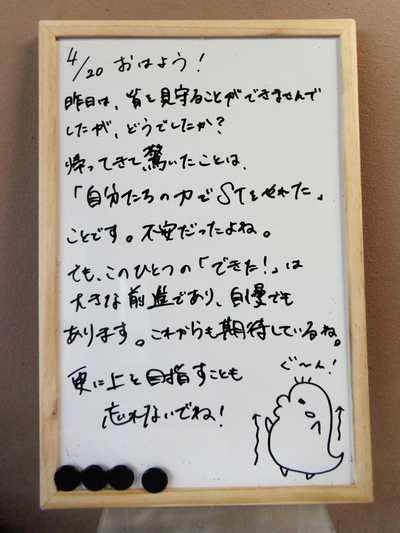 4/20 おはよう!
昨日は、皆を見守ることができませんで
したが、どうでしたか?
帰ってきて驚いたことは、
「自分たちの力でSTをやれた」
ことです。不安だったよね。
でも、このひとつの「できた!」は
大きな前進であり、自慢でも
あります。これからも期待しているね。
更に上を目指すことも
忘れないでね!
ぐ〜ん!